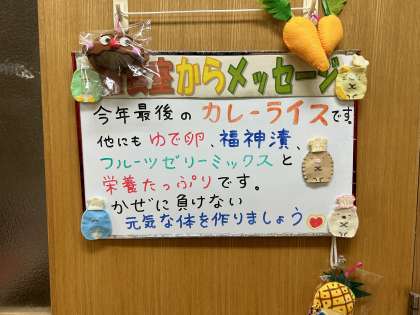 室からメッセージ
今年最後の カレーライスです。
他にも ゆで卵、福神漬、
フルーツゼリーミックスと
栄養たっぷりです。
かぜに負けない
元気な体を作りましょう